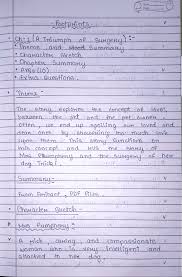 Footprints
Ch-1 (A Triumph of Surgery) :-
• Theme and Short Summary
• Character Sketch
• Chapter Summary
• Extra Questions.
Theme :-
The story explores the concept of love,
between the pet and the pet owner
often, we end up spoiling our loved and
dear ones by showering too much love
upon them. This story functions on
this concept and tells the story of
Mrs Pumphrey and the Surgery of her
dog Tricki.
Summary:-
From Portant, PDF files.
Character Sketch -
Mrs Pumphrey :-
A rich, caring and compassionate
woman who is very intelligent and
attached to her dog.